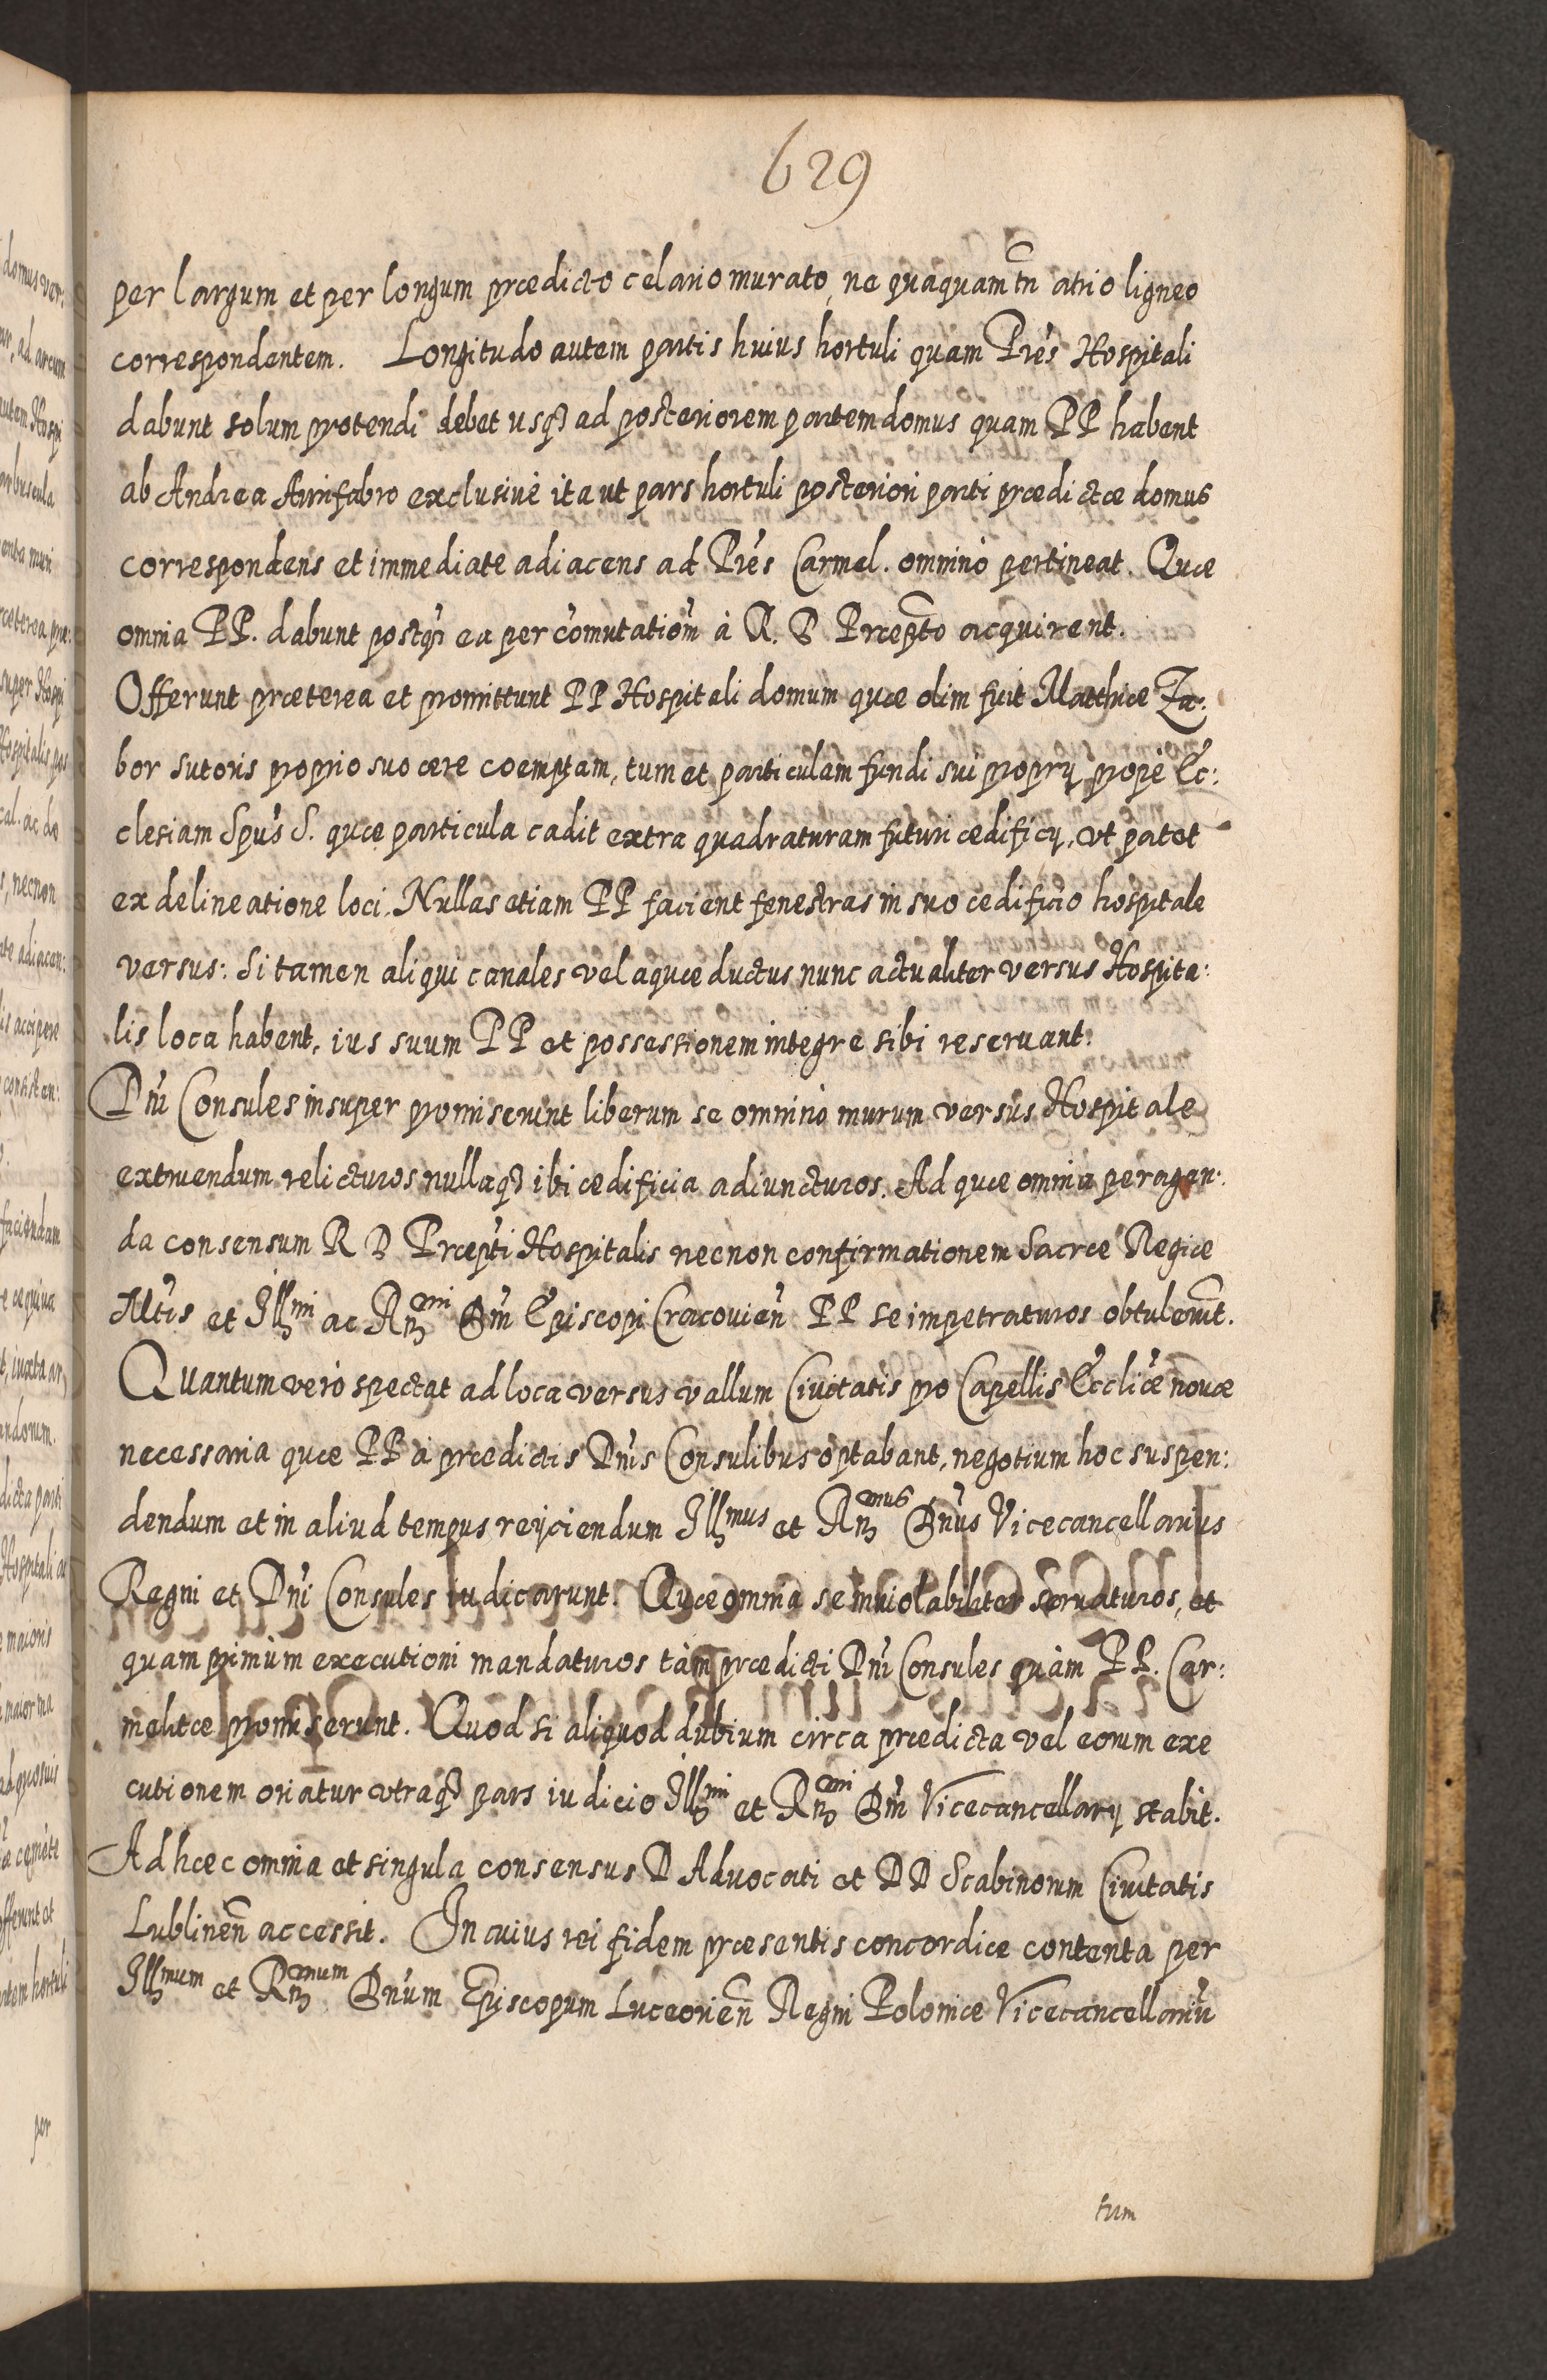 629
per largum et per longum prædicto celario murato, nequaquam tñ atrio ligneo
correspondentem. Longitudo autem partis huius hortuli quam Pr̃es Hospitali
dabunt solum protendi debet usq3 ad posteriorem partem domus quam PP habent
ab Andrea Aurifabro exclusiuè ita ut pars hortuli posteriori parti prædictæ domus
correspondens et immediate adiacens ad Pr̃es Carmel. omninò pertineat. Quæ
omnia PP. dabunt postq̃ ea per cõmutatiom̃ à R. D Præpt̃o acquirent.
Offerunt præterea et promittunt PP Hospitali domum quæ olim fuit Matthiæ Za:
bor sutoris proprio suo ære coemptam, tum et particulam fundi sui proprij propè Ec:
clesiam Spũs S. quæ particula cadit extra quadraturam futuri ædificij, vt patet
ex delineatione loci. Nullas etiam PP facient fenestras in suo ædificio hospitale
versus: Si tamen aliqui canales vel aquæ ductus nunc actualiter versus Hospita:
lis loca habent, ius suum PP et possessionem integre sibi reseruant.
Dñi Consules insuper promiserunt liberum se omninò murum versus Hospitale
extruendum relicturos nullaq3 ibi ædificia adiuncturos. Ad quæ omnia peragen:
da consensum R D Præpt̃i Hospitalis necnon confirmationem Sacræ Regiæ
Mt̃is et Illmi ac Rmi Dñi Episcopi Cracouień PP se impetraturos obtulerũt.
Quantum verò spectat ad loca versus vallum Ciuitatis pro Capellis Eccliæ̃ nouæ
necessaria quæ PP à prædictis Dñis Consulibus optabant, negotium hoc suspen:
dendum et in aliud tempus reijciendum Illmus et Rndmus Dñus Vicecancellarius
Regni et Dñi Consules iudicarunt. Quæ omnia se inuiolabiliter seruaturos, et
quam primùm executioni mandaturos tàm prædicti Dñi Consules quàm PP. Car:
melitæ promiserunt. Quod si aliquod dubium circa prædicta vel eorum exe
cutionem oriatur vtraq3 pars iudicio Illmi et Rndmi Dñi Vicecancellarij stabit.
Ad hæc omnia et singula consensus D Aduocati et DD Scabinorum Ciuitatis
Lublineñ accessit. In cuius rei fidem præsentis concordiæ contenta per
Illmum et Rndmum Dñum Episcopum Luceorień Regni Poloniæ Vicecancellariũ
tum